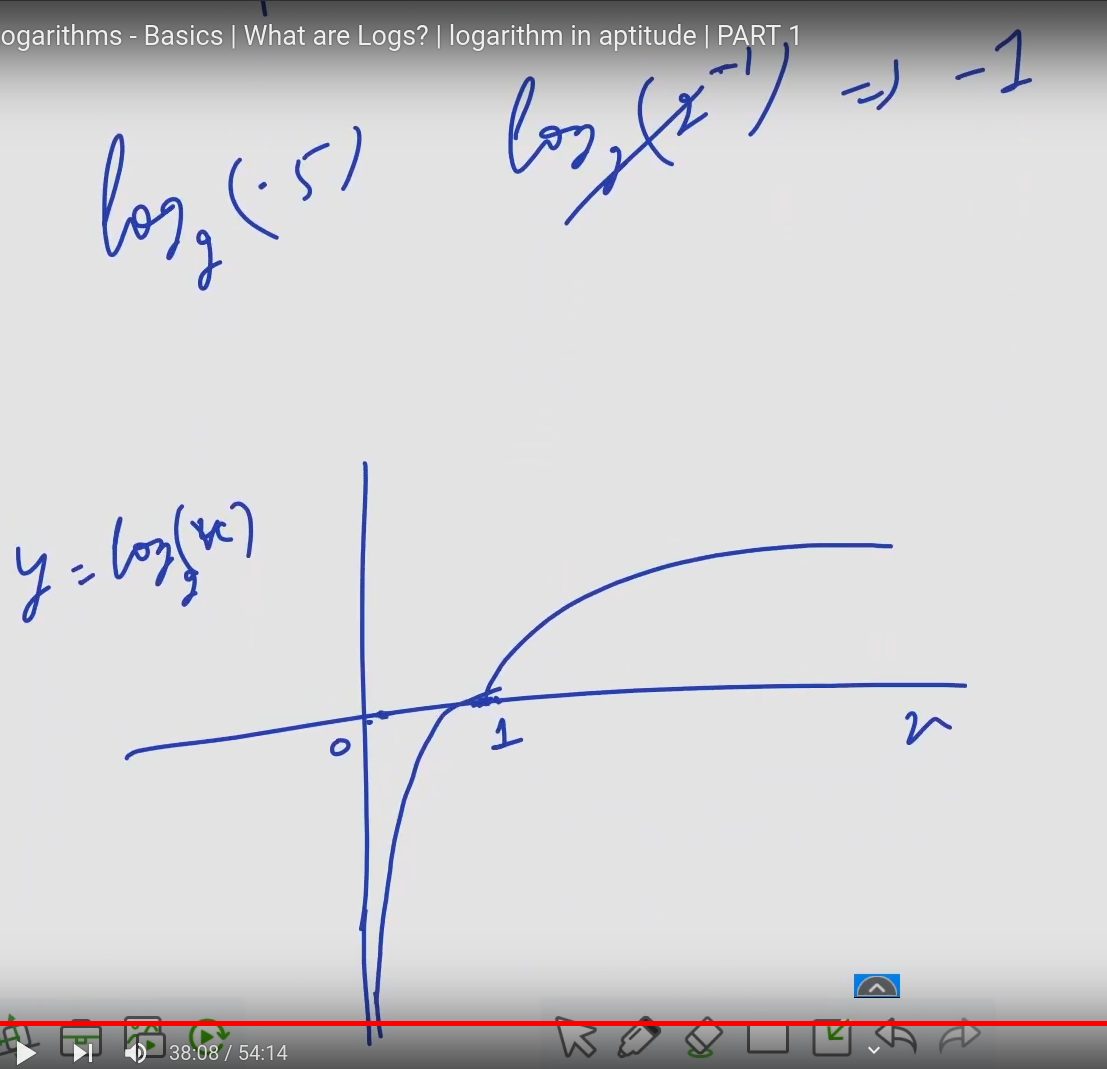 ogarithms - Basics | What are Logs? | logarithm in aptitude | PART 1
log₂(.5) log₂(2⁻¹) ⇒ -1
y = log₂(x)
0 1 x
38:08 / 54:14